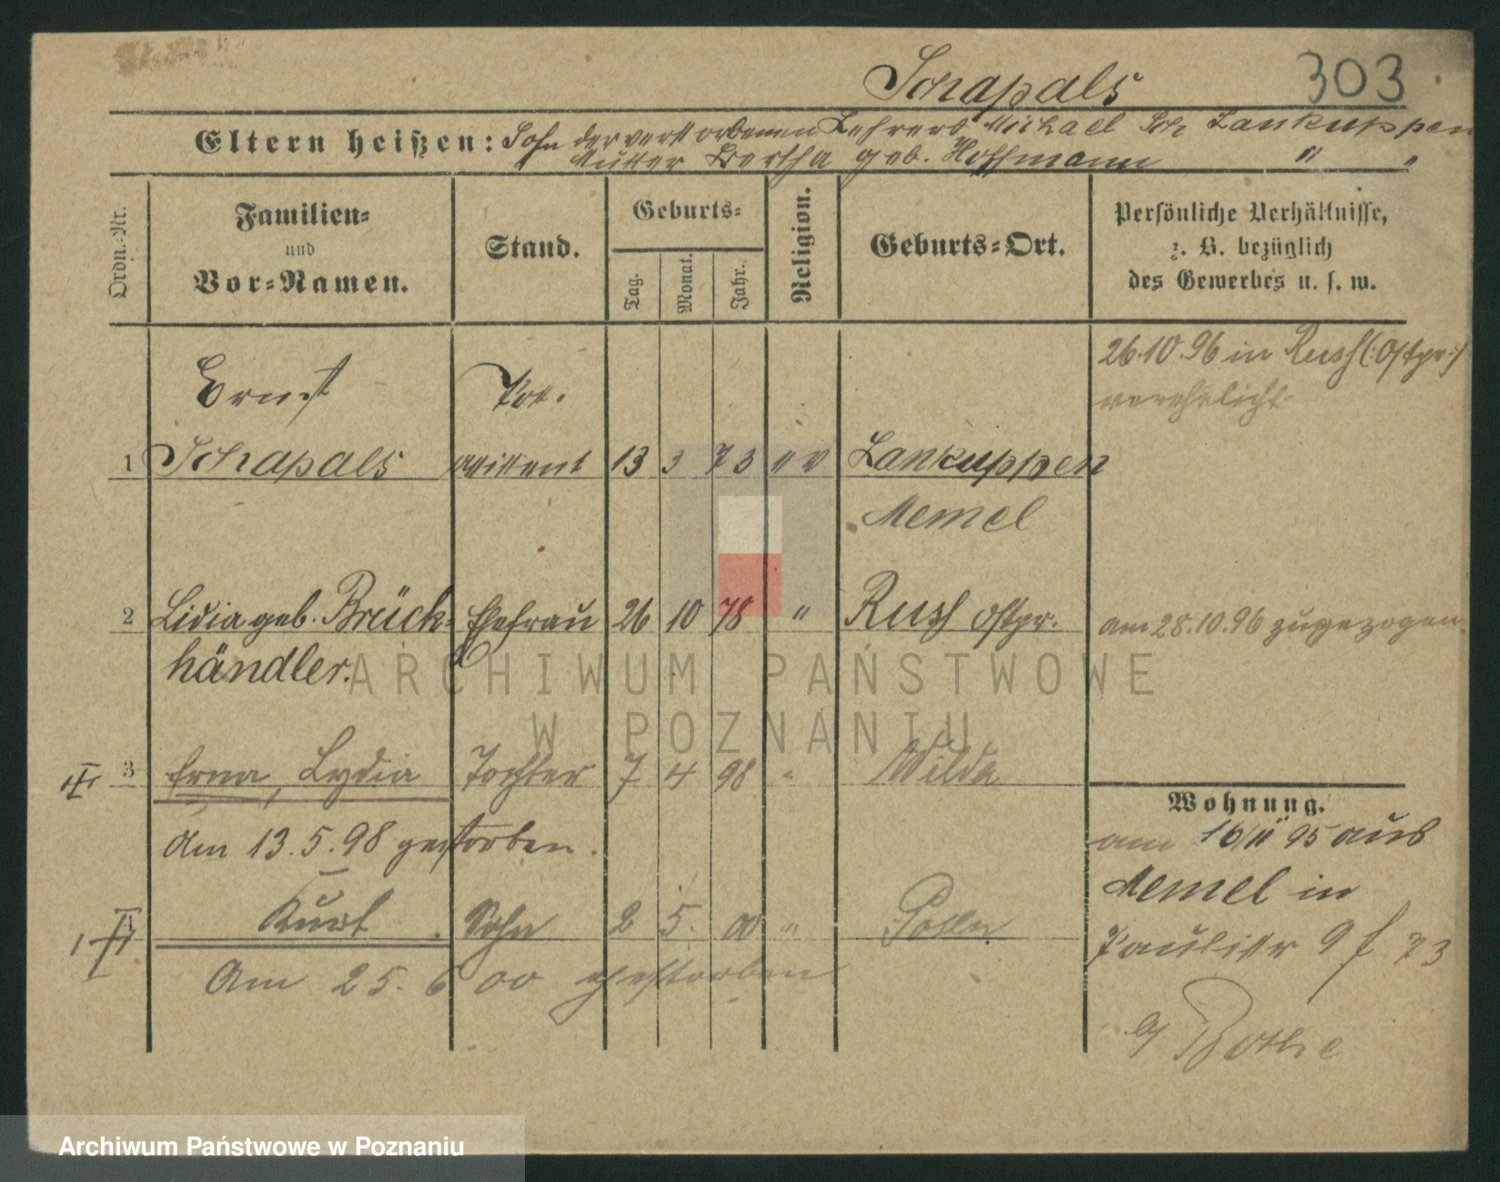 Schapals 303
Eltern heißen: Sohn der verstorbenen Lehrers Michael Sch Lankuppen
Mutter Bertha geb. Hoffmann " "
Ordn.-Nr.
Familien-
und
Vor-Namen.
Stand.
Geburts-
Tag.
Monat.
Jahr.
Religion.
Geburts-Ort.
Persönliche Verhältnisse,
z. B. bezüglich
des Gewerbes u. s. w.
26.10.96 in Russ (:Ostpr:)
verehelicht
Ernst
1 Schapals assistent 13 3 73 ev Lankuppen
Memel
2 Lidia geb. Brück- Ehefrau 26 10 78 " Russ Ostpr. am 28.10.96 zugezogen.
händler.
3 Erna, Lydia Tochter 7 4 98 " Wilda
Wohnung.
am 13.5.98 gestorben.
am 16/11 95 aus
Memel in
Kurt Sohn 2 5. 00 " Posen
Paulistr 9 f 73
Am 25. 6 00 gestorben
b/ Bothe
ARCHIWUM PAŃSTWOWE
W POZNANIU
Archiwum Państwowe w Poznaniu